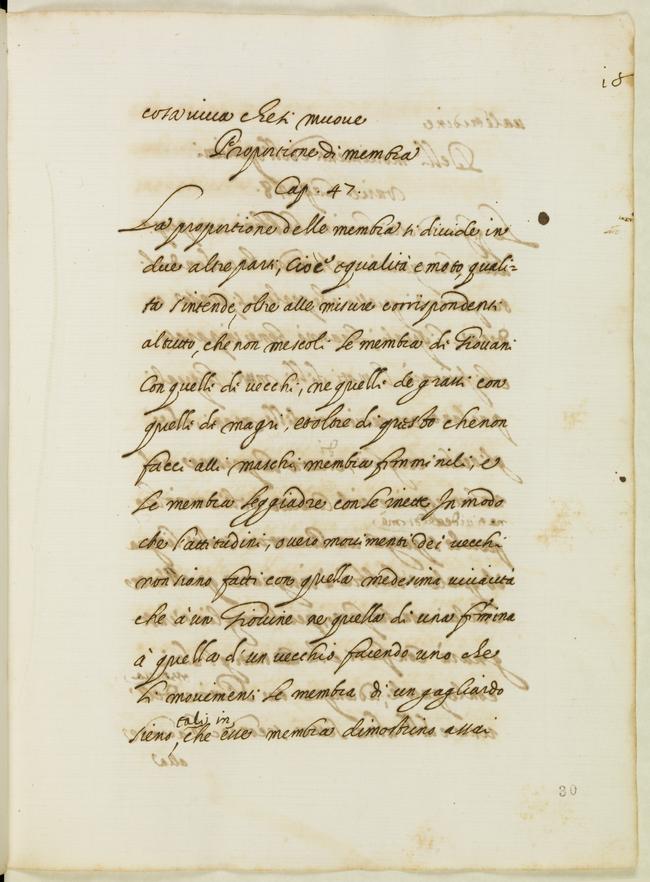 18
cosa viva che si muove
Proportione di membra
Cap. 47.
La proportione delle membra si divide in
due altre parti, cioè equalità e moto, quali=
tà s'intende, oltre alle misure corrispondenti
al tutto, che non mescoli le membra di Giovani
con quelli di vecchi, ne quelli de grassi con
quelli di magri, et oltre di questo che non
facci alli maschi membra femminili, e
le membra leggiadre con le inette. In modo
che l'attitudini, o vero movimenti dei vecchi
non siano fatti con quella medesima vivacità
che à un Giovine ne quella di una femina
à quella d'un vecchio facendo uno che
li movimenti le membra di un gagliardo
sieno tali, in
che esse membra dimostrino assai
30